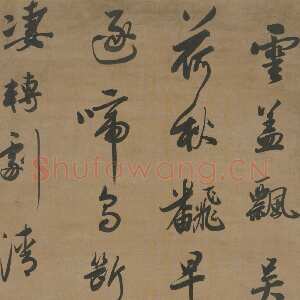 雲盖飄吴
荷秋飜早
逐啼鳥斷
凄轉劇清
Shufawang.CN